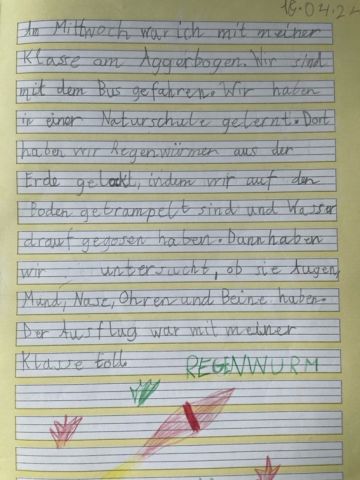 18.04.24
Am Mittwoch war ich mit meiner
Klasse am Aggerbogen. Wir sind
mit dem Bus gefahren. Wir haben
in einer Naturschule gelernt. Dort
haben wir Regenwürmen aus der
Erde gelockt, indem wir auf den
Boden getrampelt sind und Wasser
drauf gegosen haben. Dann haben
wir untersucht, ob sie Augen,
Mund, Nase, Ohren und Beine haben.
Der Ausflug war mit meiner
Klasse toll.
REGENWURM